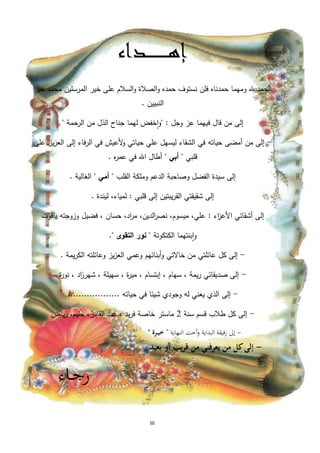 إهـــداء
الحمد لله ومهما حمدناه فلن نستوف حمده والصلاة والسلام على خير المرسلين محمد خير
النبيين .
إلى من قال فيهما عز وجل : "واخفض لهما جناح الذل من الرحمة " .
إلى من أمضى حياته في الشقاء ليسهل علي حياتي ولأعيش في الرفاء إلى العزيز على
قلبي " أبي " أطال الله في عمره .
إلى سيدة الفضل وصاحبة الدعم وملكة القلب " أمي " الغالية .
إلى شقيقتي القريبتين إلى قلبي : لمياء، ليندة .
إلى أشقائي الأعزاء : علي، ميسوم، نصرالدين، مراد، حسان ، فضيل وزوجته ياقوت
وابنتهما الكتكوتة " نور التقوى ".
- إلى كل عائلتي من خالاتي وأبنائهم وعمي العزيز وعائلته الكريمة .
- إلى صديقاتي ريمة ، سهام ، إبتسام ، ميرة ، سهيلة ، شهرزاد ، نورة.
- إلى الذي يعني له وجودي شيئا في حياته ..................
- إلى كل طلاب قسم سنة 2 ماستر خاصة فريد ، عبد القادر، حليم، رياض
- إلى رفيقة البداية وأخت النهاية " خيرة "
- إلى كل من يعرفني من قريب أو بعيد
رجاء
III